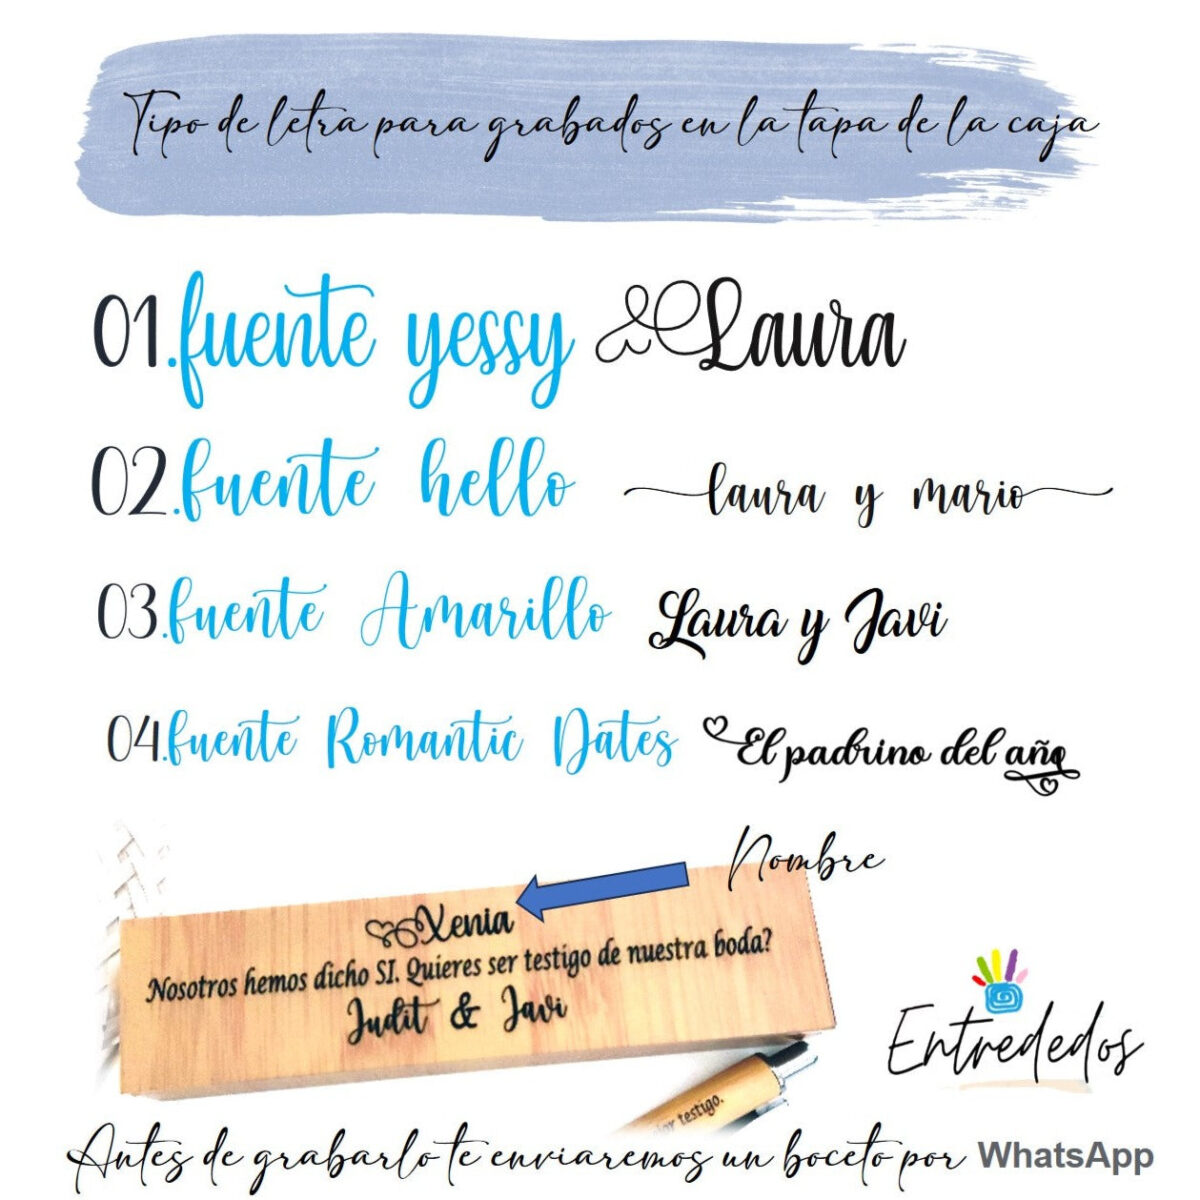 Tipo de letra para grabados en la tapa de la caja
01.fuente yessy Laura
02.fuente hello laura y mario
03.fuente Amarillo Laura y Javi
04.fuente Romantic Dates El padrino del año
Nombre
Xenia
Nosotros hemos dicho SI. Quieres ser testigo de nuestra boda?
Judit & Javi
testigo.
Entrededos
Antes de grabarlo te enviaremos un boceto por WhatsApp